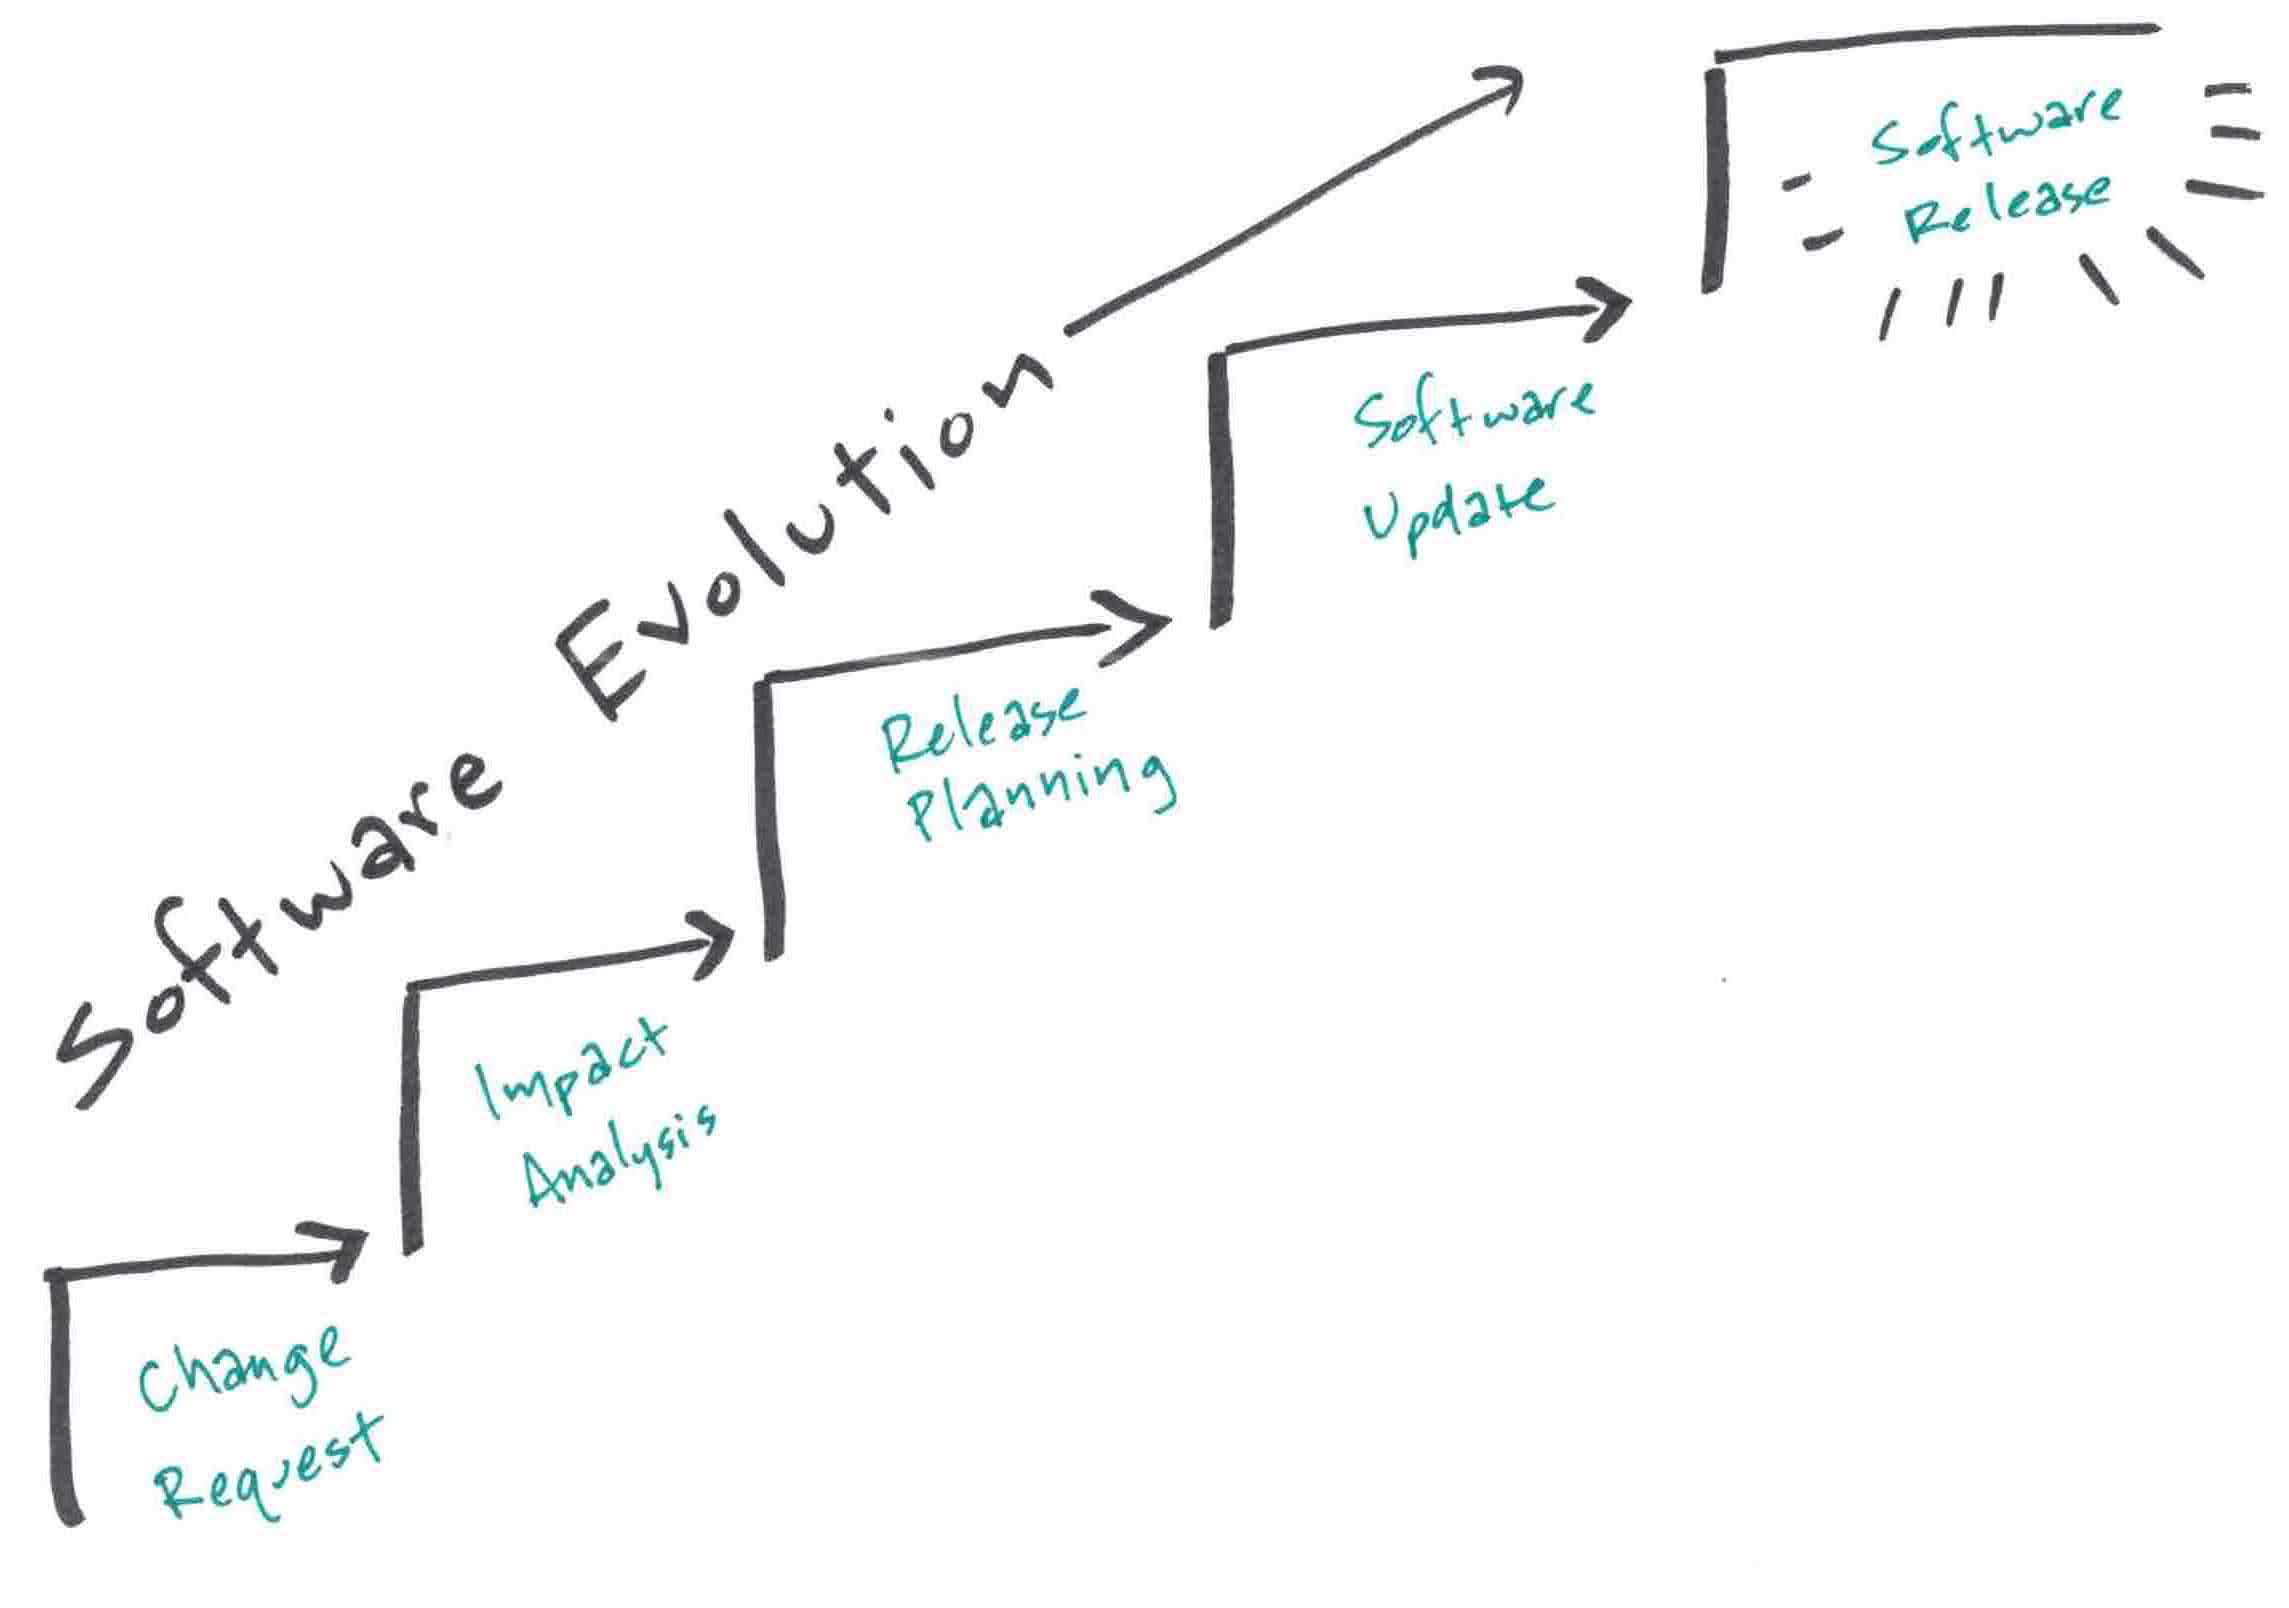 Software Evolution
Change
Request
Impact
Analysis
Release
Planning
Software
Update
Software
Release